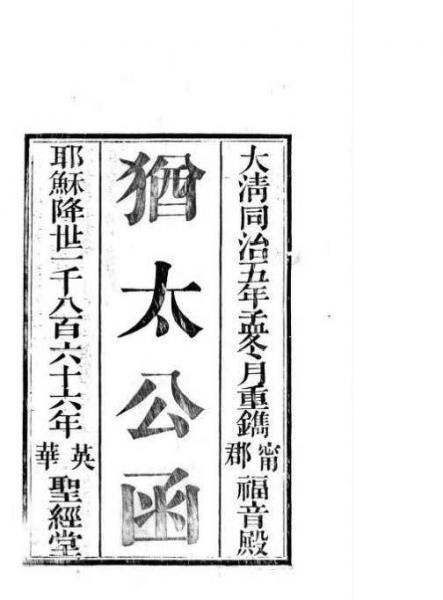 大清同治五年孟冬月重鐫甯郡福音殿
猶太公函
耶穌降世一千八百六十六年英華聖經堂